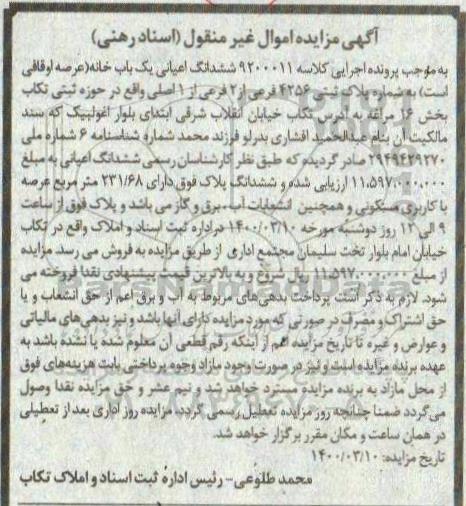 آگهی مزایده اموال غیر منقول (اسناد رهنی)
به موجب پرونده اجرایی کلاسه ۹۲۰۰۰۱۱ ششدانگ اعیانی یک باب خانه(عرصه اوقافی
است) به شماره پلاک ثبتی ۴۲۵۶ فرعی از۲ فرعی از ۱ اصلی واقع در حوزه ثبتی تکاب
بخش ۱۶ مراغه به آدرس تکاب خیابان انقلاب شرقی ابتدای بلوار اغولبیک که سند
مالکیت آن بنام عبدالحمید افشاری بدرلو فرزند محمد شماره شناسنامه ۶ شماره ملی
۲۹۴۹۴۲۹۲۷۰ صادر گردیده که طبق نظر کارشناسان رسمی ششدانگ اعیانی به مبلغ
۱۱،۵۹۷،۰۰۰،۰۰۰ ارزیابی شده و ششدانگ پلاک فوق دارای ۲۳۱/۶۸ متر مربع عرصه
با کاربری مسکونی و همچنین انشعابات آب، برق و گاز می باشد و پلاک فوق از ساعت
۹ الی ۱۲ روز دوشنبه مورخه ۱۴۰۰/۰۳/۱۰ دراداره ثبت اسناد و املاک واقع در تکاب
خیابان امام بلوار تخت سلیمان مجتمع اداری از طریق مزایده به فروش می رسد. مزایده
از مبلغ ۱۱،۵۹۷،۰۰۰،۰۰۰ ریال شروع و به بالاترین قیمت پیشنهادی نقدا فروخته می
شود. لازم به ذکر است پرداخت بدهی های مربوط به آب و برق اعم از حق انشعاب و یا
حق اشتراک و مصرف در صورتی که مورد مزایده دارای آنها باشد و نیز بدهی های مالیاتی
و عوارض و غیره تا تاریخ مزایده اعم از اینکه رقم قطعی آن معلوم شده یا نشده باشد به
عهده برنده مزایده است و نیز در صورت وجود مازاد وجوه پرداختی بابت هزینه های فوق
از محل مازاد به برنده مزایده مسترد خواهد شد و نیم عشر و حق مزایده نقدا وصول
می گردد ضمنا چنانچه روز مزایده تعطیل رسمی گردد، مزایده روز اداری بعد از تعطیلی
در همان ساعت و مکان مقرر برگزار خواهد شد.
تاریخ مزایده: ۱۴۰۰/۰۳/۱۰
محمد طلوعی- رئیس اداره ثبت اسناد و املاک تکاب
ParsNamadData